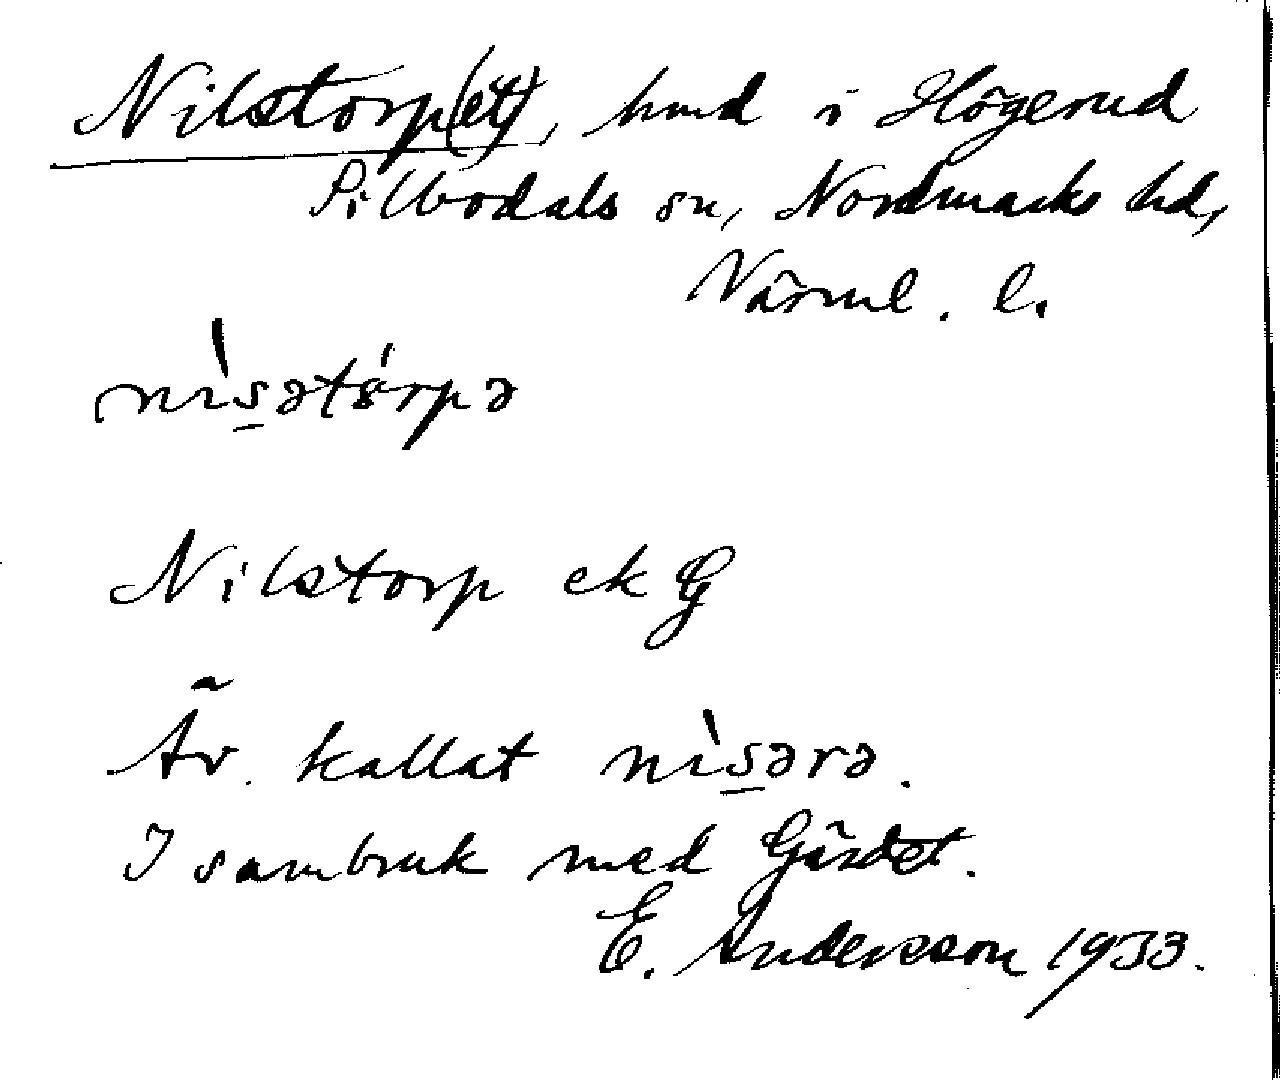 Nilstorp(et), hmd i Högerud
Silbodals sn, Nordmarks hd,
Värml. l.
nìs̠ətórpə
Nilstorp ek G
Äv. kallat nìs̠ərə.
I sambruk med Gärdet.
E. Andersson 1933.